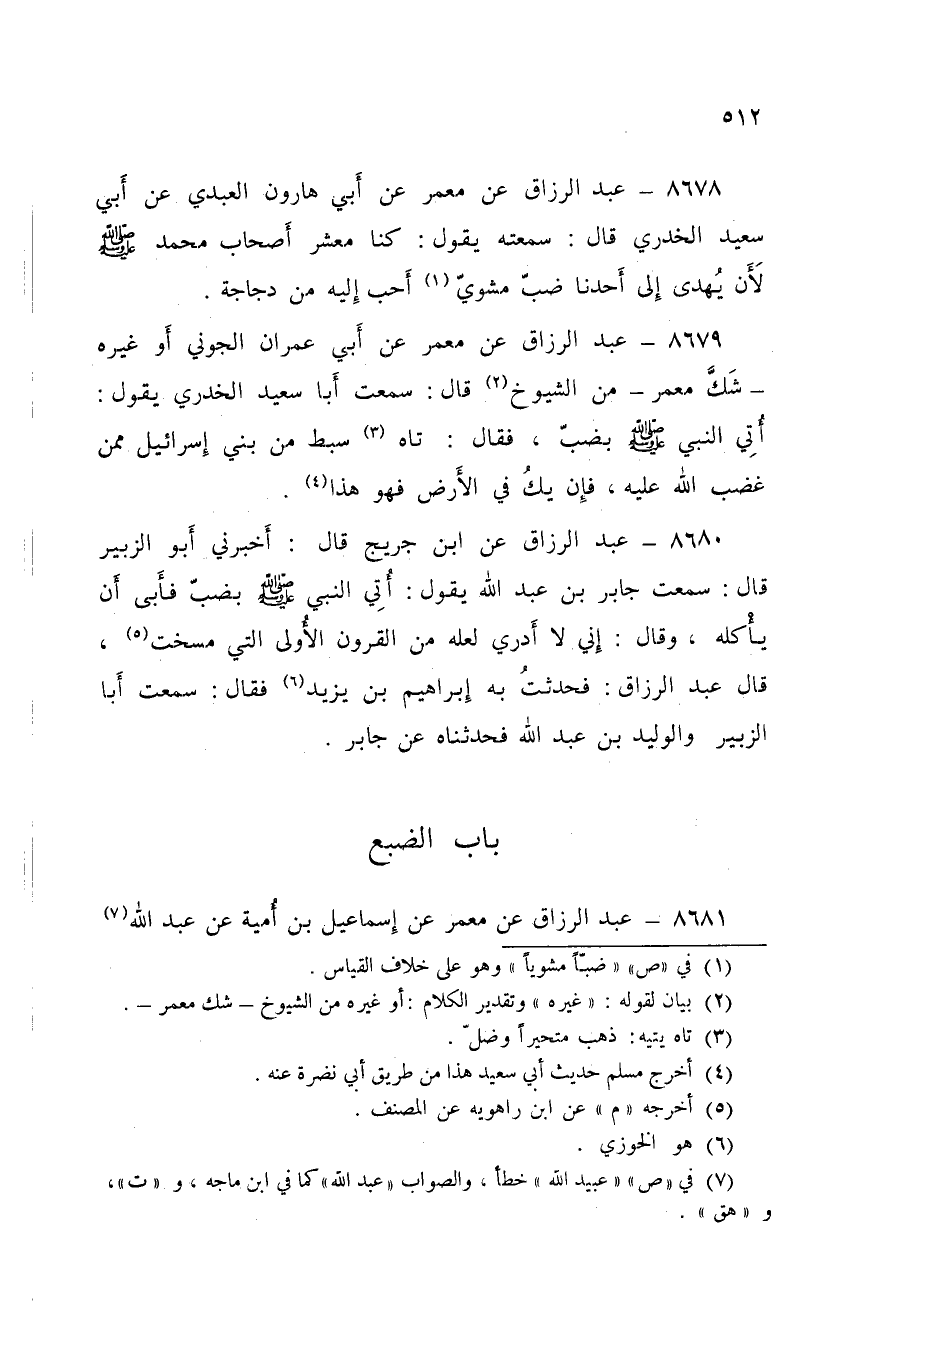 ٥١٢
٨٦٧٨ – عبد الرزاق عن معمر عن أَبي هارون العبدي عن أَبي
سعيد الخدري قال : سمعته يقول : كنا معشر أَصحاب محمد ﷺ
لَأَن يُهدى إلى أَحدنا ضبّ مشويّ (١) أَحب إليه من دجاجة .
٨٦٧٩ – عبد الرزاق عن معمر عن أَبي عمران الجوني أَو غيره
– شَكَّ معمر – من الشيوخ (٢) قال : سمعت أَبا سعيد الخدري يقول :
أُتِي النبي ﷺ بضبّ ، فقال : تاه (٣) سبط من بني إسرائيل ممن
غضب الله عليه ، فإن يكُ في الأَرض فهو هذا(٤) .
٨٦٨٠ – عبد الرزاق عن ابن جريج قال : أَخبرني أَبو الزبير
قال : سمعت جابر بن عبد الله يقول : أُتي النبي ﷺ بضبّ فأَبى أَن
يأْكله ، وقال : إني لا أَدري لعله من القرون الأُولى التي مسخت(٥) ،
قال عبد الرزاق : فحدثتُ به إبراهيم بن يزيد(٦) فقال : سمعت أَبا
الزبير والوليد بن عبد الله فحدثناه عن جابر .
باب الضبع
٨٦٨١ – عبد الرزاق عن معمر عن إسماعيل بن أُمية عن عبد الله(٧)
(١) في «ص» « ضبّاً مشوياً » وهو على خلاف القياس .
(٢) بيان لقوله : « غيره » وتقدير الكلام : أو غيره من الشيوخ – شك معمر – .
(٣) تاه يتيه : ذهب متحيراً وضلّ .
(٤) أخرج مسلم حديث أبي سعيد هذا من طريق أبي نضرة عنه .
(٥) أخرجه « م » عن ابن راهويه عن المصنف .
(٦) هو الخوزي .
(٧) في «ص» « عبيد الله » خطأ ، والصواب «عبد الله» كما في ابن ماجه ، و « ت » ،
و « هق » .